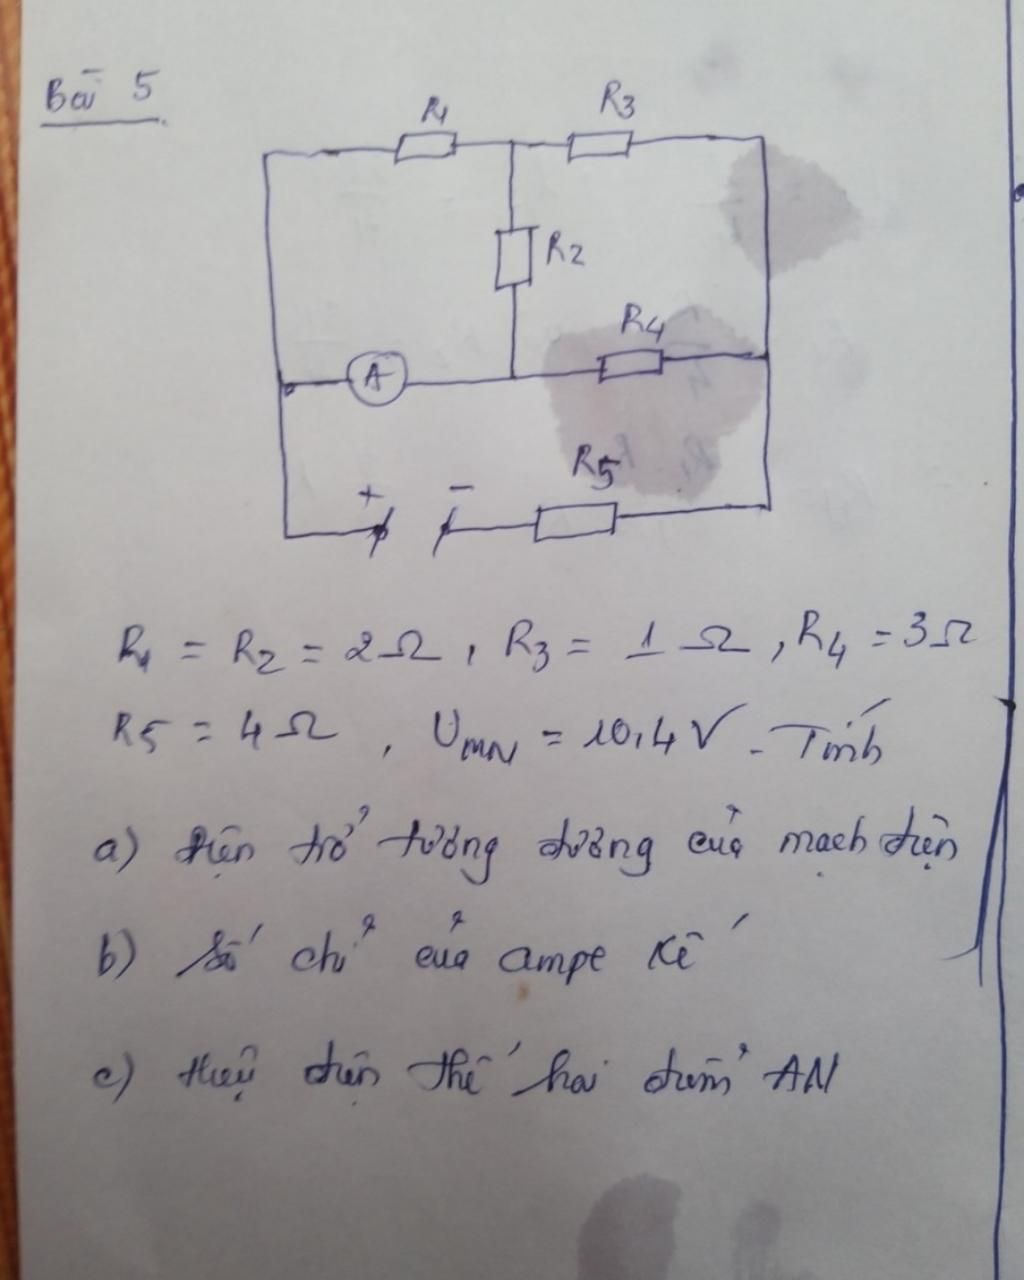 Bài 5
R1 R3
R2
R4
A
R5
+ -
R1 = R2 = 2Ω, R3 = 1Ω, R4 = 3Ω
R5 = 4Ω, UMN = 10,4V. Tính
a) điện trở tương đương của mạch điện
b) Số chỉ của ampe kế
c) Hiệu điện thế hai điểm AN